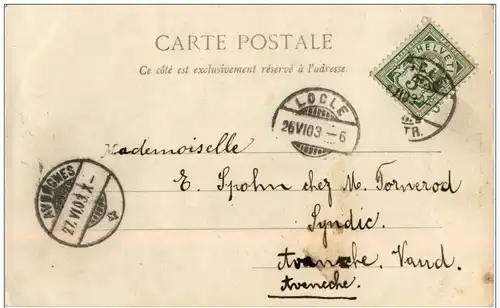 CARTE POSTALE
Ce côté est exclusivement réservé à l'adresse.
HELVETIA
5
LOCLE
26 VI 03 - 6
Mademoiselle
E. Spohn chez M. Tornerod
Syndic.
Avenche. Vaud.
Aveneche
AVENCHES
27. VI. 03. X -